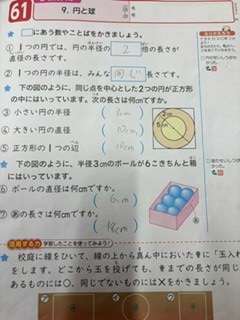 61
9. 円と球
★ □にあう数やことばをかきましょう。
① 1つの円では、円の半径の 2 倍の長さが
直径の長さです。
② 1つの円の半径は、みんな 同じ 長さです。
★ 下の図のように、同じ点を中心とした2つの円が正方形
の中にはいっています。次の長さは何cmですか。
③ 小さい円の半径
④ 大きい円の直径
⑤ 正方形の1つの辺
★ 下の図のように、半径3cmのボールが6こきちんと箱
にはいっています。
⑥ ボールの直径は何cmですか。
(6cm)
⑦ あの長さは何cmですか。
(18cm)
活用する力 学習したことを使ってみよう!
★ 校庭に線をひいて、線の上から真ん中においた
をします。どこから玉を投げても、まての長さが同じ
あるものには○、同じでないものには×をかきましょう。